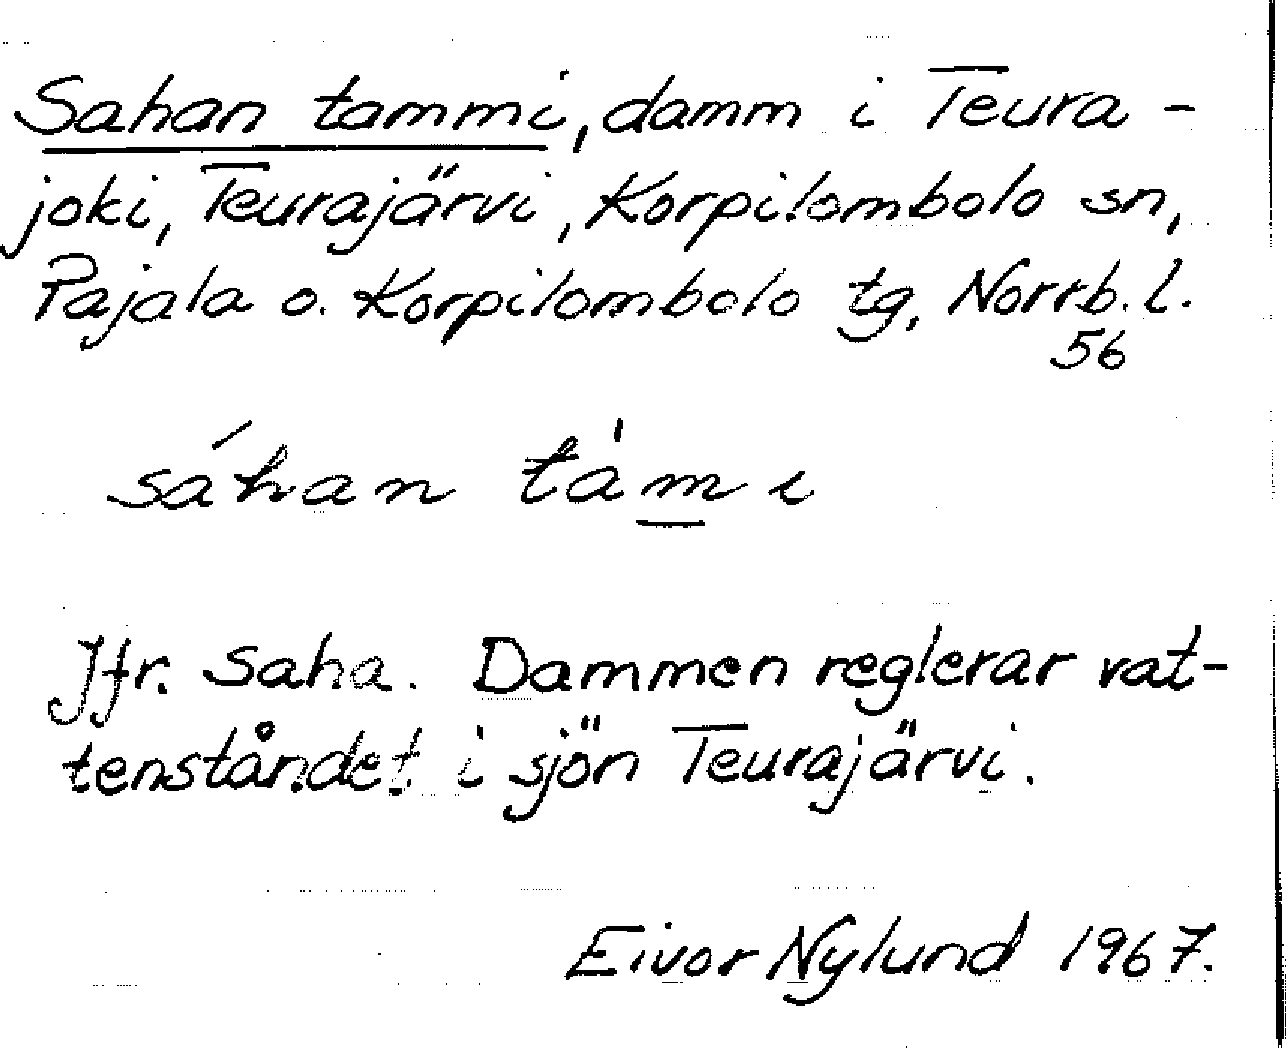 Sahan tammi, damm i Teura-
joki, Teurajärvi, Korpilombolo sn,
Pajala o. Korpilombolo tg, Norrb. l.
56
sáhan tàm̲i
Jfr. Saha. Dammen reglerar vat-
tenståndet i sjön Teurajärvi.
Eivor Nylund 1967.